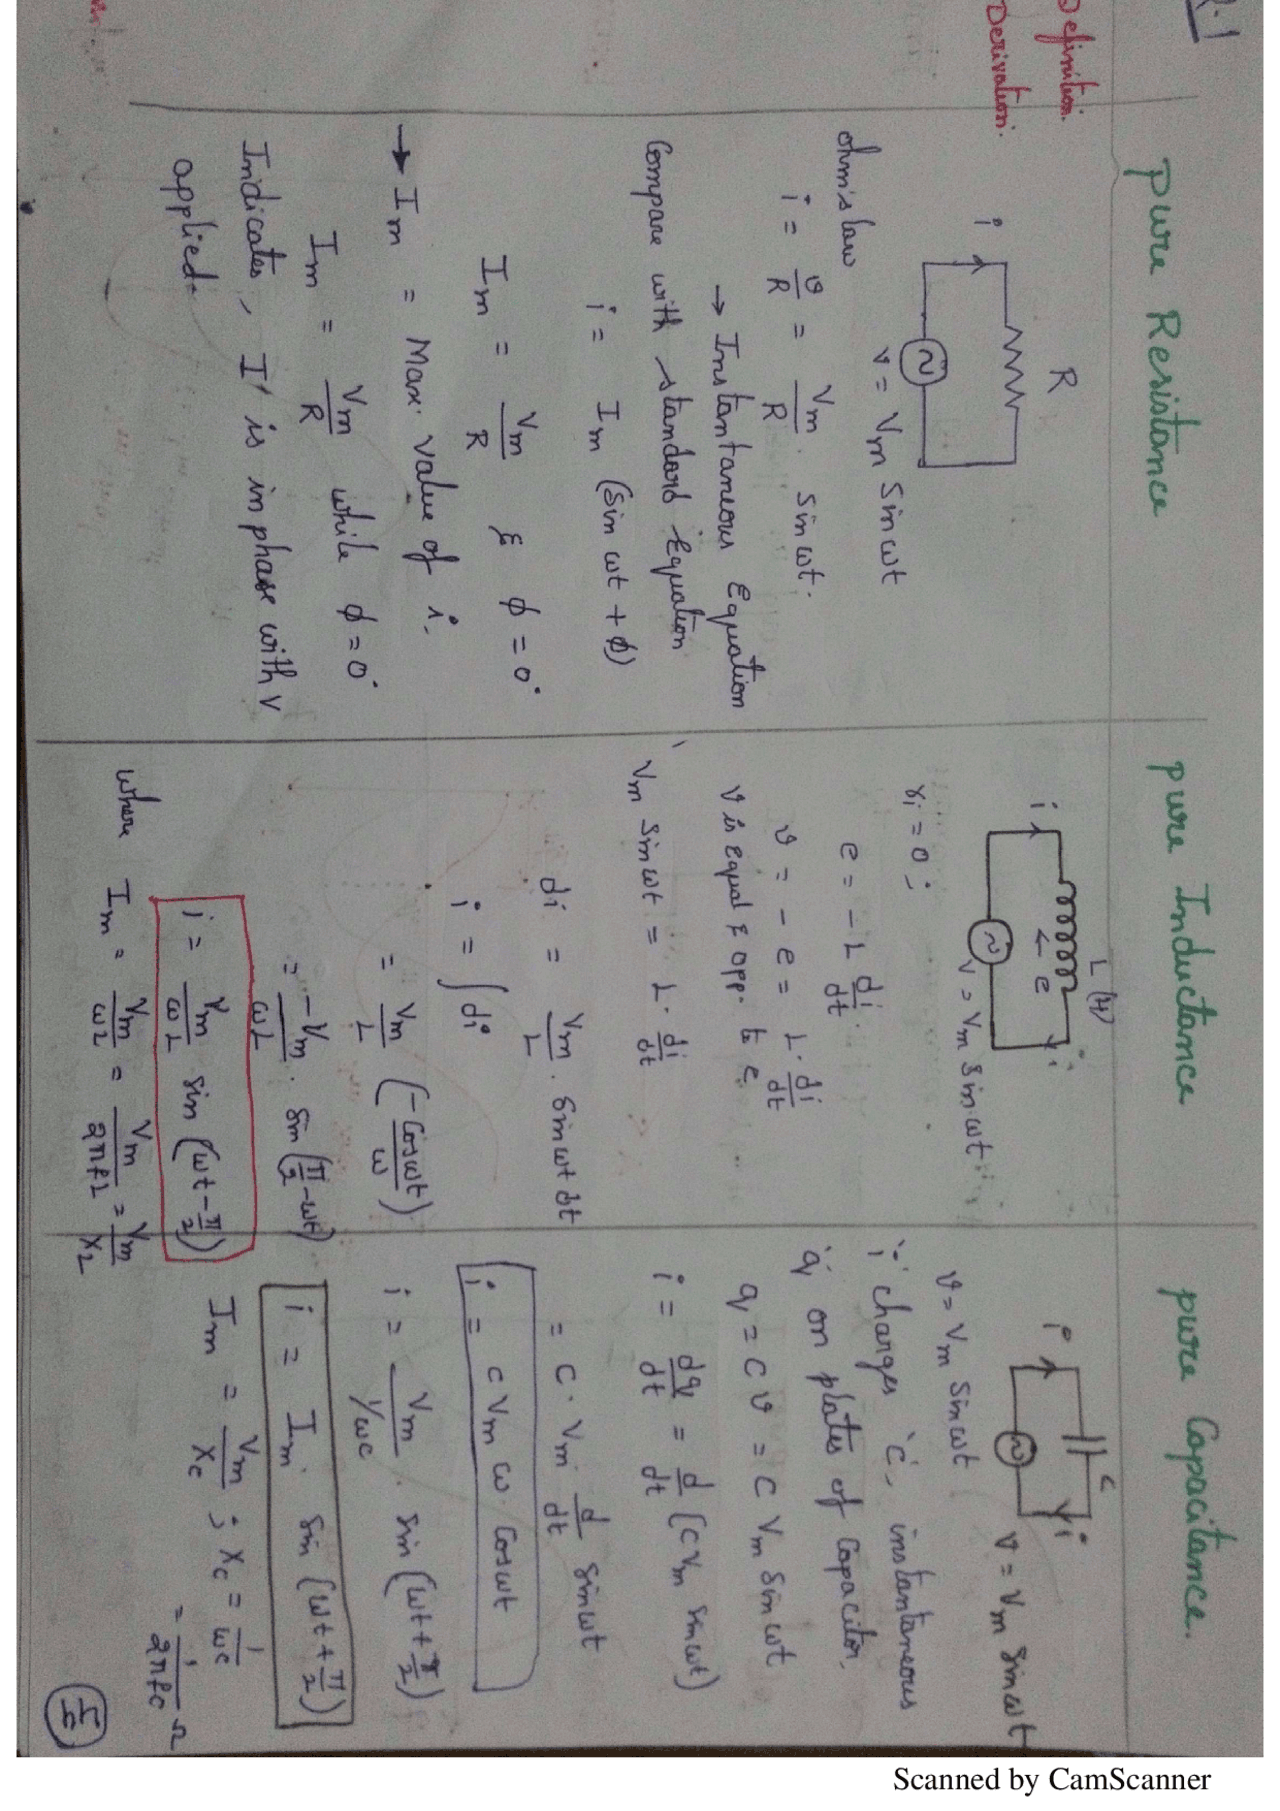 R.1
Definition.
Derivation.
pure Resistance
R
i
v = Vm sin ωt
ohm's law
i = v/R = Vm/R . sin ωt.
→ Instantaneous Equation
Compare with standard Equation
i = Im (sin ωt + φ)
Im = Vm/R & φ = 0°
→ Im = Max. value of i.
Im = Vm/R while φ = 0°
Indicates, 'I' is in phase with V
applied.
pure Inductance
L (H)
i e i
v = Vm sin ωt
ri = 0 ;
e = -L di/dt.
v = -e = L. di/dt
v is equal & opp. to e
Vm sin ωt = L. di/dt
di = Vm/L . sin ωt dt
i = ∫di
= Vm/L (-cos ωt/ω)
= -Vm/ωL . sin (π/2 - ωt)
i = Vm/ωL sin (ωt - π/2)
where Im = Vm/ωL = Vm/2πfL = Vm/XL
pure Capacitance.
C
i i
v = Vm sin ωt
v = Vm sin ωt
'i' charges 'c', instantaneous
'q' on plates of Capacitor,
q = CV = C Vm sin ωt
i = dq/dt = d/dt (CVm sin ωt)
= C. Vm. d/dt sin ωt
i = C Vm ω. cos ωt
i = Vm/1/ωc . sin (ωt + π/2)
i = Im. sin (ωt + π/2)
Im = Vm/Xc ; Xc = 1/ωc
= 1/2πfc Ω
Scanned by CamScanner